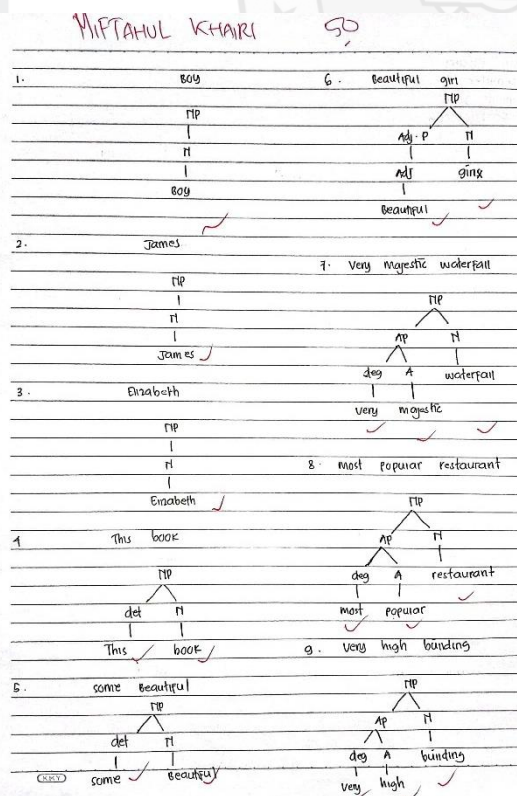 MIFTAHUL KHAIRI 50
1. BOY
NP
N
BOY
2. James
NP
N
James
3. Elizabeth
NP
N
Elizabeth
4 This book
NP
det N
This book
5. some Beautiful
NP
det N
some Beautiful
6. Beautiful girl
NP
Adj. P N
Adj girl
Beautiful
7. Very majestic waterfall
NP
AP N
deg A waterfall
very majestic
8. most popular restaurant
NP
AP N
deg A restaurant
most popular
9. very high building
NP
AP N
deg A building
very high
KKY